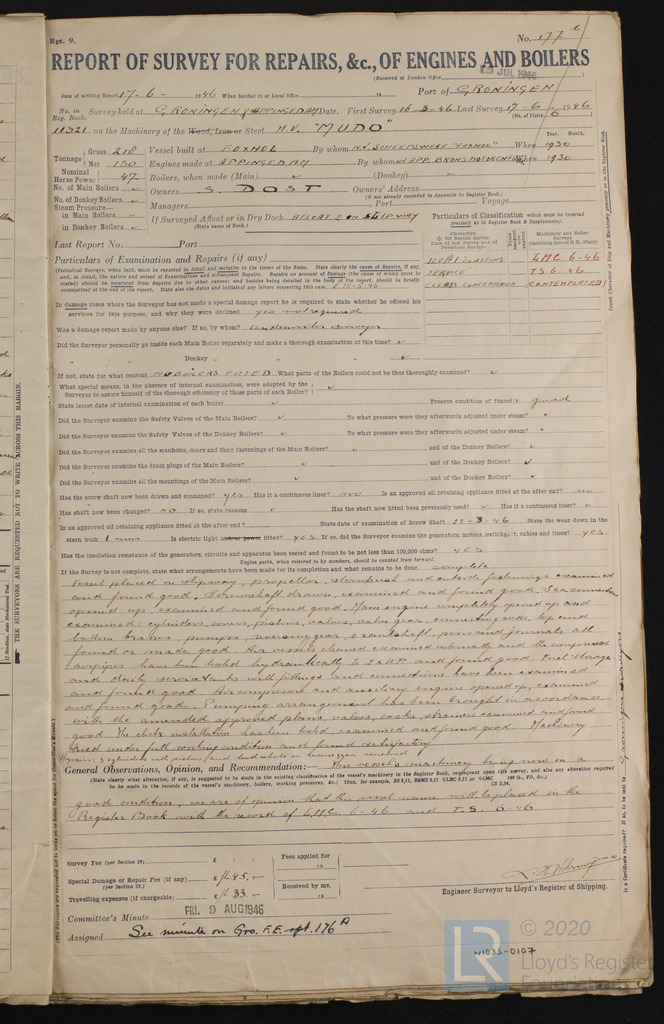 Rpt. 9.
No. 177 e
REPORT OF SURVEY FOR REPAIRS, &c., OF ENGINES AND BOILERS
(Received at London Office JUL 1946)
Date of writing Report 17-6- 1946 When handed in at Local Office 19 Port of GRONINGEN
No. in Reg. Book. Survey held at GRONINGEN & APPINGEDAM Date. First Survey 16-3-46 Last Survey 17-6-1946
(No. of Visits 6)
11321 on the Machinery of the Wood, Iron or Steel M.V. "MUDO"
Year. Month.
Tonnage Gross 218 Vessel built at FOXHOL By whom N.V. SCHEEPSWERF "FOXHOL" When 1930
Net 130 Engines made at APPINGEDAM By whom APP. BRONS MOTORENFABR When 1930
Nominal Horse Power 47 Boilers, when made (Main) (Donkey)
No. of Main Boilers Owners S. DOST Owners' Address
(If not already recorded in Appendix to Register Book.)
No. of Donkey Boilers Managers Port Voyage
Steam Pressure in Main Boilers If Surveyed Afloat or in Dry Dock AFLOAT & ON SLIPWAY
in Donkey Boilers (State name of Dock.)
Particulars of Classification which must be inserted precisely as in Register Book & Supplements).
Last Report No. Port
Particulars of Examination and Repairs (if any)
100A1 COASTING LMC 6-46
SERVICE TS 6-46
CLASS CONTEMPLATED CONTEMPLATED
In damage cases where the Surveyor has not made a special damage report he is required to state whether he offered his
services for this purpose, and why they were declined yes not required
Was a damage report made by anyone else? If so, by whom? underwriter surveyor
Did the Surveyor personally go inside each Main Boiler separately and make a thorough examination at this time?
" " Donkey " " "
If not, state for what reasons NO BOILERS FITTED What parts of the Boilers could not be thus thoroughly examined?
What special means, in the absence of internal examination, were adopted by the
Surveyor to assure himself of the thorough efficiency of those parts of each Boiler?
State latest date of internal examination of each boiler Present condition of funnel(s) good
Did the Surveyor examine the Safety Valves of the Main Boilers? To what pressure were they afterwards adjusted under steam?
Did the Surveyor examine the Safety Valves of the Donkey Boilers? To what pressure were they afterwards adjusted under steam?
Did the Surveyor examine all the manholes, doors and their fastenings of the Main Boilers and of the Donkey Boilers?
Did the Surveyor examine the drain plugs of the Main Boilers? and of the Donkey Boilers?
Did the Surveyor examine all the mountings of the Main Boilers? and of the Donkey Boilers?
Has the screw shaft now been drawn and examined? yes Has it a continuous liner? no Is an approved oil retaining appliance fitted at the after end? no
Has shaft now been changed? NO If so, state reasons Has the shaft now fitted been previously used? Has it a continuous liner?
Is an approved oil retaining appliance fitted at the after end? State date of examination of Screw Shaft 22-3-46 State the wear down in the
stern bush 1 m/m Is electric light and/or power fitted? YES If so, did the Surveyor examine the generators, motors, switchgear, cables and fuses? YES
Has the insulation resistance of the generators, circuits and apparatus been tested and found to be not less than 100,000 ohms? YES
Engine parts, when referred to by numbers, should be counted from forward.
If the Survey is not complete, state what arrangements have been made for its completion and what remains to be done complete
Vessel placed on slipway, propellor, sternbush and outside fastenings examined
and found good. Screwshaft drawn, examined and found good. Seaconnections
opened up examined and found good. Main engine completely opened up and
examined: cylinders, covers, pistons, valves, valve gear, connecting rods, top and
bottom brasses, pumps, reversing gear, crankshaft, pins and journals all
found or made good. Air vessels cleaned examined internally and the compressed
airpipes have been tested hydraulically to 2xWP and found good. Fuel storage
and daily service tanks with fittings and connections have been examined
and found good. Aircompressor and auxiliary engine opened up, examined
and found good. Pumping arrangement has been brought in accordance
with the amended approved plans, valves, cocks, strainers examined and found
good. The electr. installation has been tested, examined and found good. Machinery
tried under full working condition and found satisfactory.
General Observations, Opinion, and Recommendation:— This vessel's machinery being now in a
(State clearly what alteration, if any, is suggested to be made in the existing classification of the vessel's machinery in the Register Book, consequent upon this survey, and also any alteration required
good condition, we are of opinion that this vessel name will be placed in the
Register Book with the record of LMC 6-46 and T.S. 6-46
Survey Fee (per Section 29) £ : : Fees applied for
19
Special Damage or Repair Fee (if any) (per Section 29.) fl 45.- Received by me,
Travelling expenses (if chargeable) fl 33.- 19
Engineer Surveyor to Lloyd's Register of Shipping.
Committee's Minute FRI. 9 AUG 1946
Assigned See minute on Gro. F.E. rpt. 176A
W1035-0107
© 2020
LR
Lloyd's Register
Foundation
THE SURVEYORS ARE REQUESTED NOT TO WRITE ACROSS THIS MARGIN.